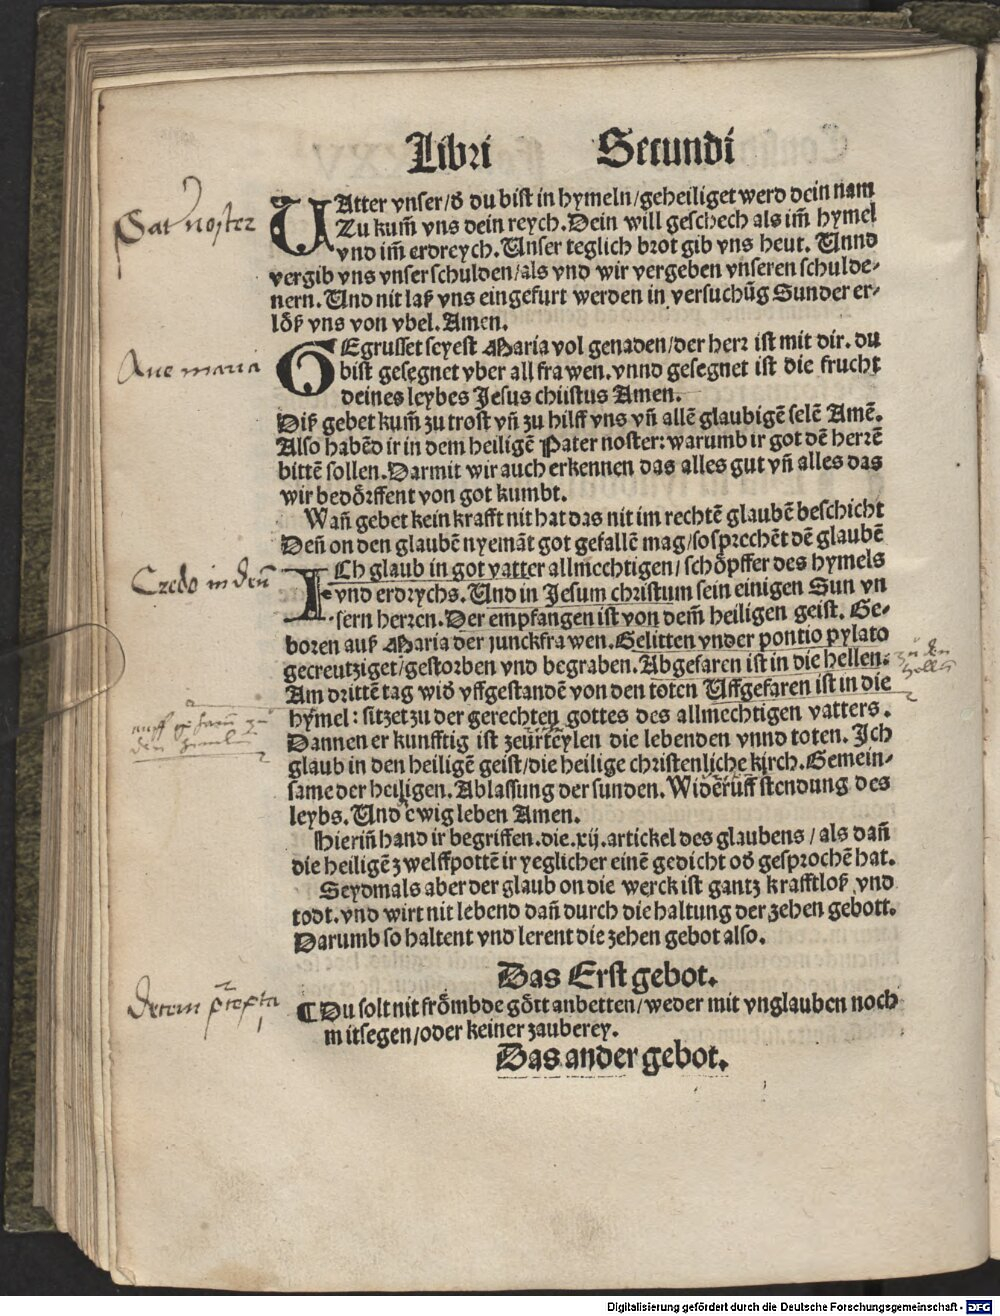 Libri Secundi
Pat noster
VAtter vnser/d̕ du bist in hymeln/geheiliget werd dein nam
Zu kum̃ vns dein reych. Dein will geschech als im̃ hymel
vnd im̃ erdreych. Unser teglich brot gib vns heut. Unnd
vergib vns vnser schulden/als vnd wir vergeben vnseren schulde-
nern. Und nit laß vns eingefurt werden in versuchūg Sunder er-
löß vns von vbel. Amen.
Aue maria
GEgrusset seyest Maria vol genaden/der herr ist mit dir. du
bist gesegnet vber all frawen. vnnd gesegnet ist die frucht
deines leybes Jesus christus Amen.
Diß gebet kum̃ zu trost vn̄ zu hilff vns vn̄ allē glaubigē selē Amē.
Also habēd ir in dem heiligē Pater noster: warumb ir got dē herrē
bittē sollen. Darmit wir auch erkennen das alles gut vn̄ alles das
wir bedörffent von got kumbt.
Wan̄ gebet kein krafft nit hat das nit im rechtē glaubē beschicht
Den̄ on den glaubē nyemāt got gefallē mag/so sprechēt dē glaubē
Credo in deū
ICh glaub in got vatter allmechtigen/schöpffer des hymels
vnd erdrychs. Und in Jesum christum sein einigen Sun vn
sern herren. Der empfangen ist von dem̄ heiligen geist. Ge-
boren auß Maria der junckfrawen. Gelitten vnder pontio pylato
gecreutziget/gestorben vnd begraben. Abgefaren ist in die hellen.
zu den
hellē
Am drittē tag wid̕ vffgestandē von den toten Uffgefaren ist in die
hymel: sitzet zu der gerechten gottes des allmechtigen vatters.
Dannen er kunfftig ist zeurteylen die lebenden vnnd toten. Ich
glaub in den heiligē geist/die heilige christenliche kirch. Gemein-
same der heiligen. Ablassung der sunden. Widerūff stendung des
leybs. Und ewig leben Amen.
Hierin̄ hand ir begriffen. die. xij. artickel des glaubens/als dan̄
die heiligē zwelffpottē ir yeglicher einē gedicht od̕ gesprochē hat.
Seydmals aber der glaub on die werck ist gantz krafftloß vnd
todt. vnd wirt nit lebend dan̄ durch die haltung der zehen gebott.
Darumb so haltent vnd lerent die zehen gebot also.
Das Erst gebot.
Decem p̄cepta
¶ Du solt nit frömbde gött anbetten/weder mit vnglauben noch
mitsegen/oder keiner zauberey.
Das ander gebot.
Digitalisierung gefördert durch die Deutsche Forschungsgemeinschaft - DFG